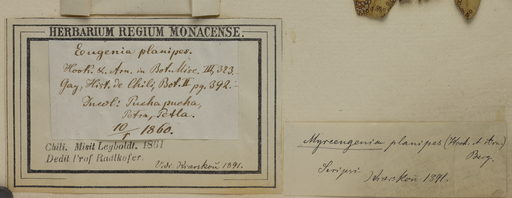 HERBARIUM REGIUM MONACENSE.
Eugenia planipes.
Hook. & Arn. in Bot. Misc. III, 323.
Gay, Hist. de Chile, Bot. II pg. 392.
Incol: Puchapucha,
Petra, Petla.
10/1 1860.
Chili. Misit Leyboldt. 1861
Dedit Prof Radlkofer.
Vidi Kiaerskou 1891.
Myrceugenia planipes (Hook. et Arn)
Berg.
Scripsi
Kiaerskou 1891.